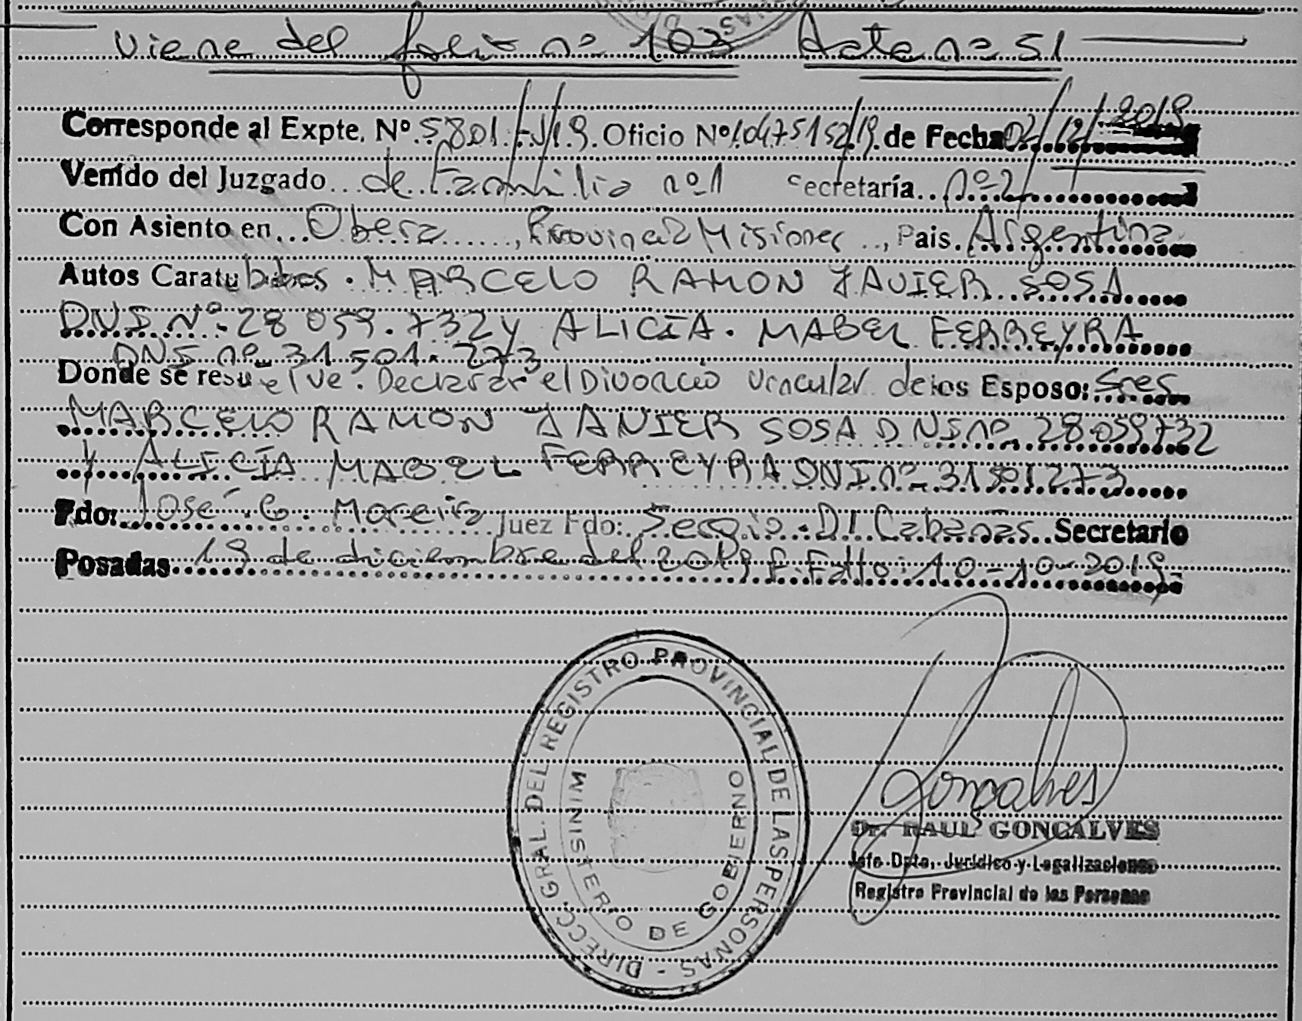 viene del folio nº 103 Acta nº 51
Corresponde al Expte. Nº 5801/19. Oficio Nº 10475152/19. de Fecha 02/12/2019
Venido del Juzgado de Familia nº 1 Secretaría nº 2
Con Asiento en Obera, Provincia Misiones, Pais. Argentina
Autos Caratulados. MARCELO RAMON JAVIER SOSA
DNI Nº 28 059.732 y ALICIA. MABEL FERREYRA
DNI nº 31.501.273
Donde se resuelve: Declarar el Divorcio vincular de los Esposo: Sres
MARCELO RAMON JAVIER SOSA DNI nº 28059732
y ALICIA MABEL FERREYRA DNI nº 31501273
Fdo: José G. Moreira Juez Fdo: Sergio D. Cabañas. Secretario
Posadas 19 de diciembre del 2019 F. Fallo: 10-10-2019.
DIRECC. GRAL. DEL REGISTRO PROVINCIAL DE LAS PERSONAS -
MINISTERIO DE GOBIERNO
Goncalves
Dr. RAUL GONCALVES
Jefe Dpto. Jurídico y Legalizaciones
Registro Provincial de las Personas